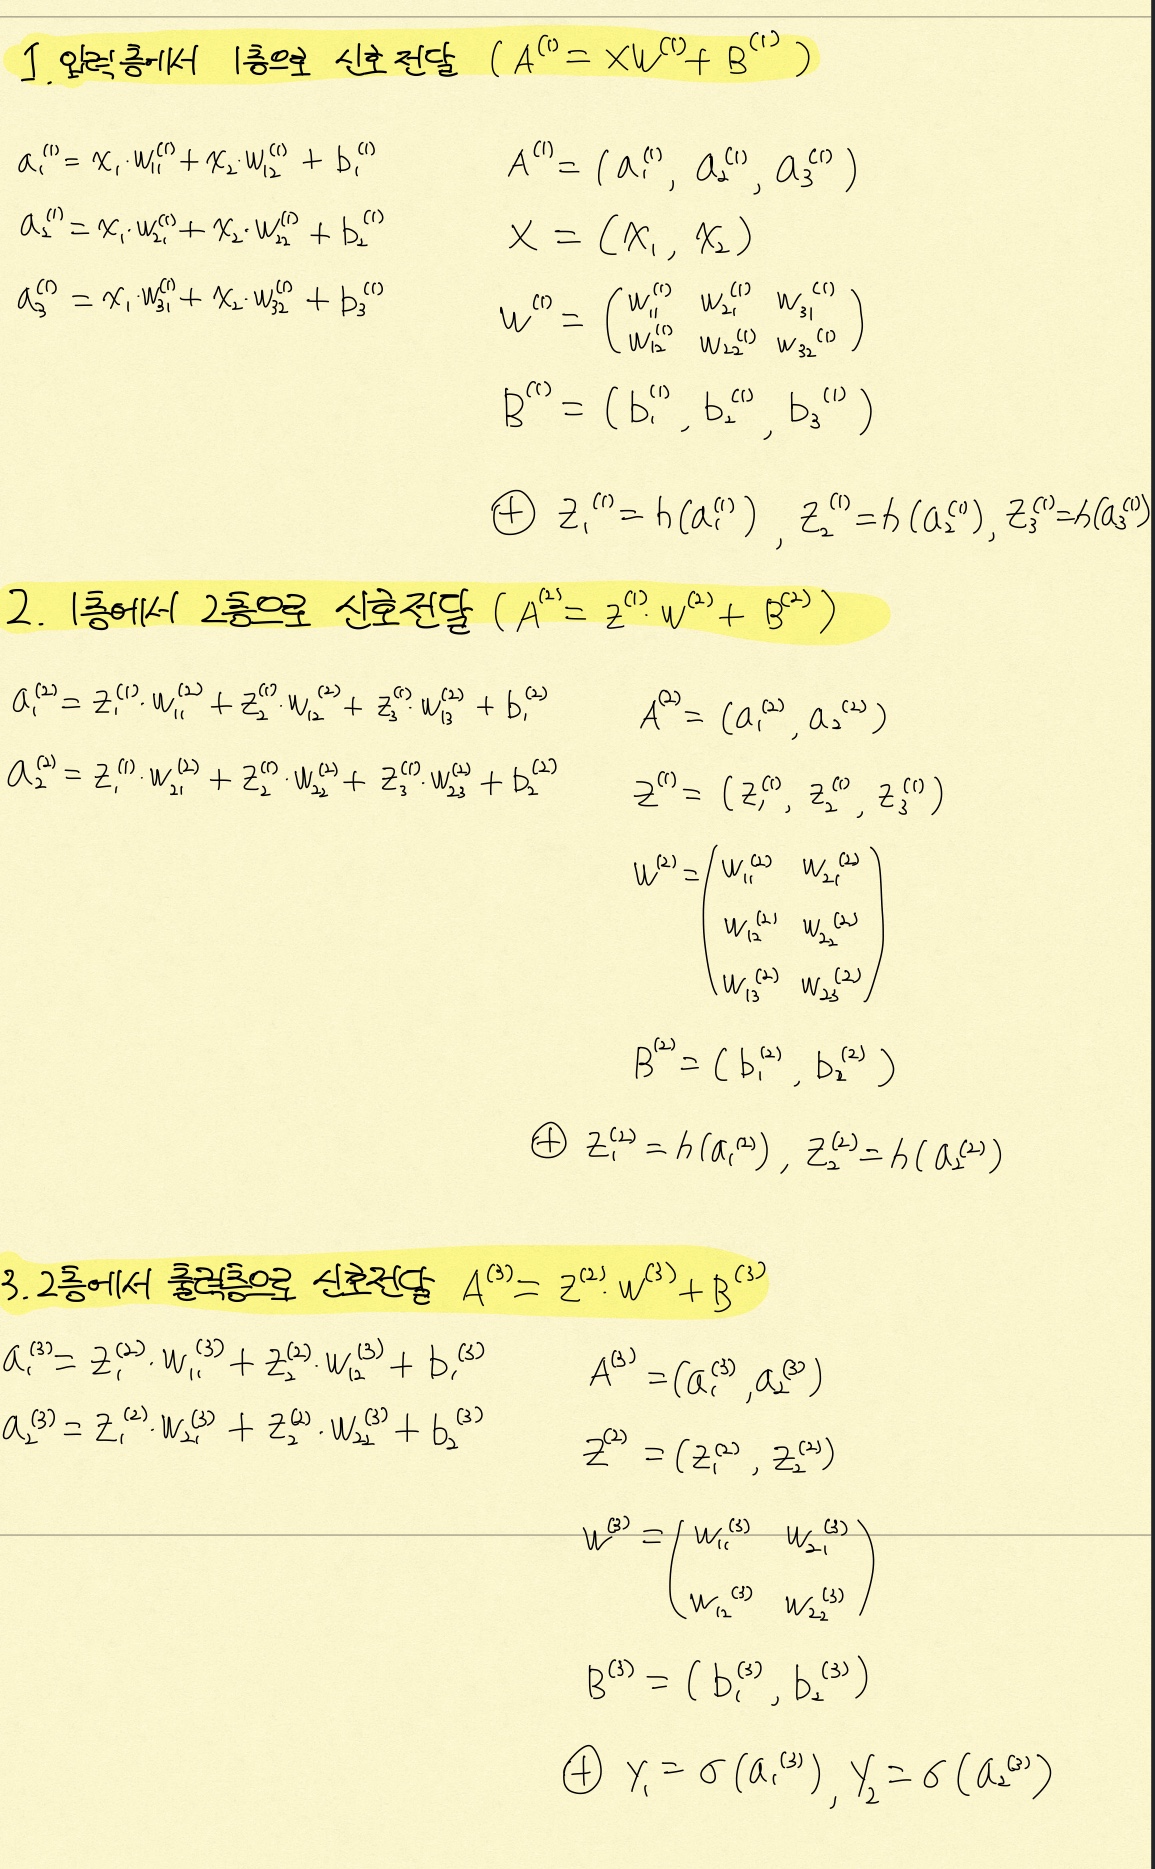 1. 입력층에서 1층으로 신호전달 (A⁽¹⁾ = XW⁽¹⁾ + B⁽¹⁾)
a₁⁽¹⁾ = x₁·w₁₁⁽¹⁾ + x₂·w₁₂⁽¹⁾ + b₁⁽¹⁾
a₂⁽¹⁾ = x₁·w₂₁⁽¹⁾ + x₂·w₂₂⁽¹⁾ + b₂⁽¹⁾
a₃⁽¹⁾ = x₁·w₃₁⁽¹⁾ + x₂·w₃₂⁽¹⁾ + b₃⁽¹⁾
A⁽¹⁾ = (a₁⁽¹⁾, a₂⁽¹⁾, a₃⁽¹⁾)
X = (x₁, x₂)
W⁽¹⁾ = (w₁₁⁽¹⁾ w₂₁⁽¹⁾ w₃₁⁽¹⁾
w₁₂⁽¹⁾ w₂₂⁽¹⁾ w₃₂⁽¹⁾)
B⁽¹⁾ = (b₁⁽¹⁾, b₂⁽¹⁾, b₃⁽¹⁾)
⊕ z₁⁽¹⁾ = h(a₁⁽¹⁾), z₂⁽¹⁾ = h(a₂⁽¹⁾), z₃⁽¹⁾ = h(a₃⁽¹⁾)
2. 1층에서 2층으로 신호전달 (A⁽²⁾ = z⁽¹⁾·W⁽²⁾ + B⁽²⁾)
a₁⁽²⁾ = z₁⁽¹⁾·w₁₁⁽²⁾ + z₂⁽¹⁾·w₁₂⁽²⁾ + z₃⁽¹⁾·w₁₃⁽²⁾ + b₁⁽²⁾
a₂⁽²⁾ = z₁⁽¹⁾·w₂₁⁽²⁾ + z₂⁽¹⁾·w₂₂⁽²⁾ + z₃⁽¹⁾·w₂₃⁽²⁾ + b₂⁽²⁾
A⁽²⁾ = (a₁⁽²⁾, a₂⁽²⁾)
Z⁽¹⁾ = (z₁⁽¹⁾, z₂⁽¹⁾, z₃⁽¹⁾)
W⁽²⁾ = (w₁₁⁽²⁾ w₂₁⁽²⁾
w₁₂⁽²⁾ w₂₂⁽²⁾
w₁₃⁽²⁾ w₂₃⁽²⁾)
B⁽²⁾ = (b₁⁽²⁾, b₂⁽²⁾)
⊕ z₁⁽²⁾ = h(a₁⁽²⁾), z₂⁽²⁾ = h(a₂⁽²⁾)
3. 2층에서 출력층으로 신호전달 A⁽³⁾ = Z⁽²⁾·W⁽³⁾ + B⁽³⁾
a₁⁽³⁾ = z₁⁽²⁾·w₁₁⁽³⁾ + z₂⁽²⁾·w₁₂⁽³⁾ + b₁⁽³⁾
a₂⁽³⁾ = z₁⁽²⁾·w₂₁⁽³⁾ + z₂⁽²⁾·w₂₂⁽³⁾ + b₂⁽³⁾
A⁽³⁾ = (a₁⁽³⁾, a₂⁽³⁾)
Z⁽²⁾ = (z₁⁽²⁾, z₂⁽²⁾)
W⁽³⁾ = (w₁₁⁽³⁾ w₂₁⁽³⁾
w₁₂⁽³⁾ w₂₂⁽³⁾)
B⁽³⁾ = (b₁⁽³⁾, b₂⁽³⁾)
⊕ Y₁ = σ(a₁⁽³⁾), Y₂ = σ(a₂⁽³⁾)